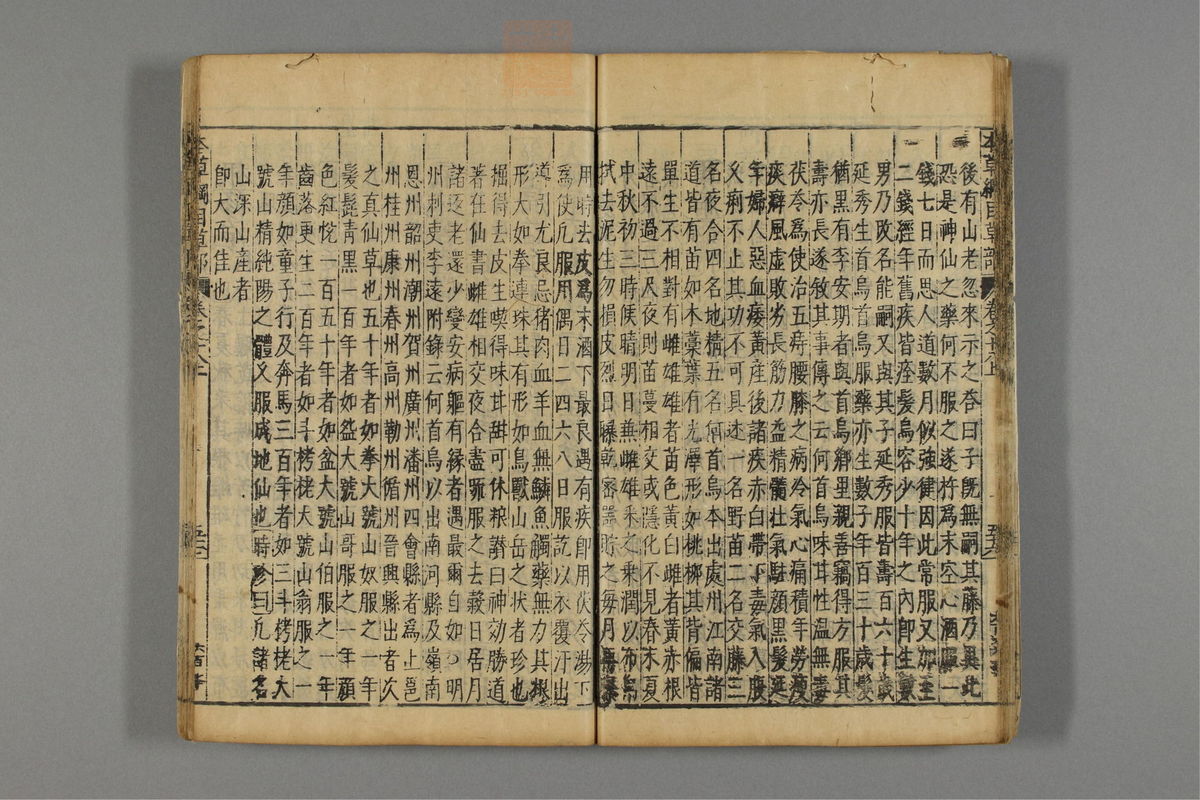 本草綱目草部
後有山老忽來示之荅曰子既無嗣其藤乃異此
恐是神仙之藥何不服之遂杵爲末空心酒服一
錢七日而思人道數月似強健因此常服又加至
二錢經年舊疾皆痊髮烏容少十年之內卽生數
男乃改名能嗣又與其子延秀服皆壽百六十歲
延秀生首烏首烏服藥亦生數子年百三十歲髮
猶黑有李安期者與首烏鄉里親善竊得方服其
壽亦長遂敘其事傳之云何首烏味甘性温無毒
茯苓爲使治五痔腰膝之病冷氣心痛積年勞瘦
痰癖風虛敗劣長筋力益精髓壯氣駐顔黑髮延
年婦人惡血痿黃産後諸疾赤白帶下毒氣入腹
久痢不止其功不可具述一名野苗二名交藤三
名夜合四名地精五名何首烏本出處州江南諸
道皆有苗如木藁葉有光澤形如桃柳其背偏皆
單生不相對有雌雄雄者苗色黃白雌者黃赤根
遠不過三尺夜則苗蔓相交或隱化不見春末夏
中秋初三時候晴明日兼雌雄采之乘潤以布帛
拭去泥生勿損皮烈日曝乾密器貯之每月再曝
用時去皮爲末酒下最良遇有疾卽用茯苓湯下
爲使凢服用偶日二四六八日服訖以衣覆汗出
導引尤良忌猪肉血羊血無鱗魚觸藥無力其根
形大如拳連珠其有形如鳥獸山岳之狀者珍也
掘得去皮生喫得味甘甜可休粮讃曰神効勝道
著在仙書雌雄相交夜合晝踈服之去穀日居月
諸返老還少變安病軀有縁者遇最爾自如〻明
州刺吏李遠附錄云何首烏以出南河縣及嶺南
恩州韶州潮州賀州廣州潘州四會縣者爲上邕
州桂州康州春州高州勒州循州晉興縣出者次
之真仙草也五十年者如拳大號山奴服之一年
髮髭青黑一百年者如盌大號山哥服之一年顔
色紅悅一百五十年者如盆大號山伯服之一年
齒落更生二百年者如斗栲栳大號山翁服之一
年顔如童子行及奔馬三百年者如三斗栲栳大
號山精純陽之體久服成地仙也時珍曰凢諸名
山深山産者
卽大而佳也
本草綱目草部